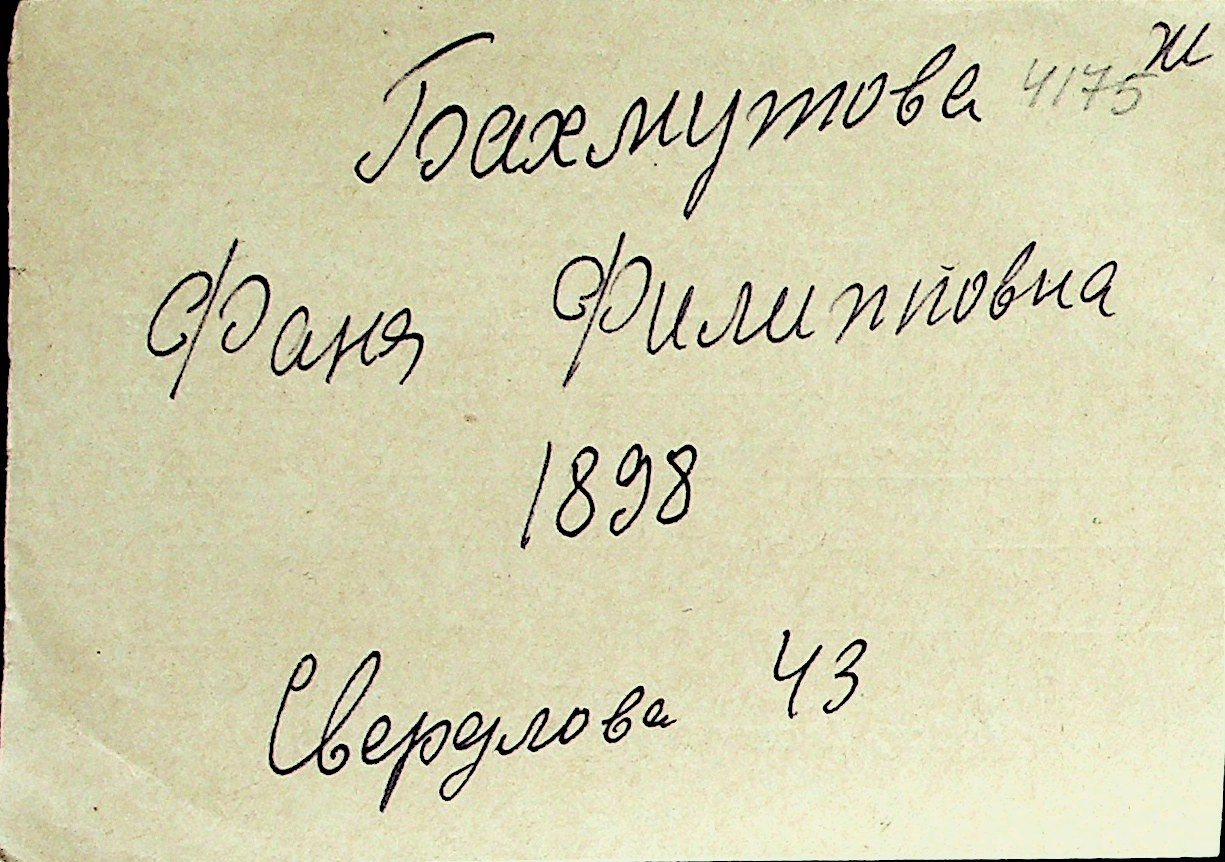 Бахмутова 4175 ж
Фаня Филипповна
1898
Свердлова 43